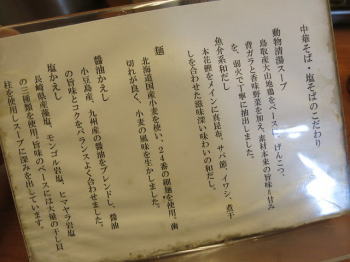 中華そば・塩そばのこだわり
動物清湯スープ
鳥取産大山地鶏をベースに、げんこつ、
背ガラと香味野菜を加え、素材本来の旨味と甘み
を、弱火で丁寧に抽出しました。
魚介系和だし
本花鰹をメインに真昆布、サバ節、イワシ、煮干
しを合わせた滋味深い味わいの和だし。
麺
北海道国産小麦を使い、24番の細麺を使用。歯
切れが良く、小麦の風味を生かしました。
醤油かえし
小豆島産、九州産の醤油をブレンドし、醤油
の旨味とコクをバランスよく合わせました。
塩かえし
長崎県産藻塩、モンゴル岩塩、ヒマラヤ岩塩
の三種類を使用。旨味のベースには大量の干し貝
柱を使用しスープに深みを出しています。